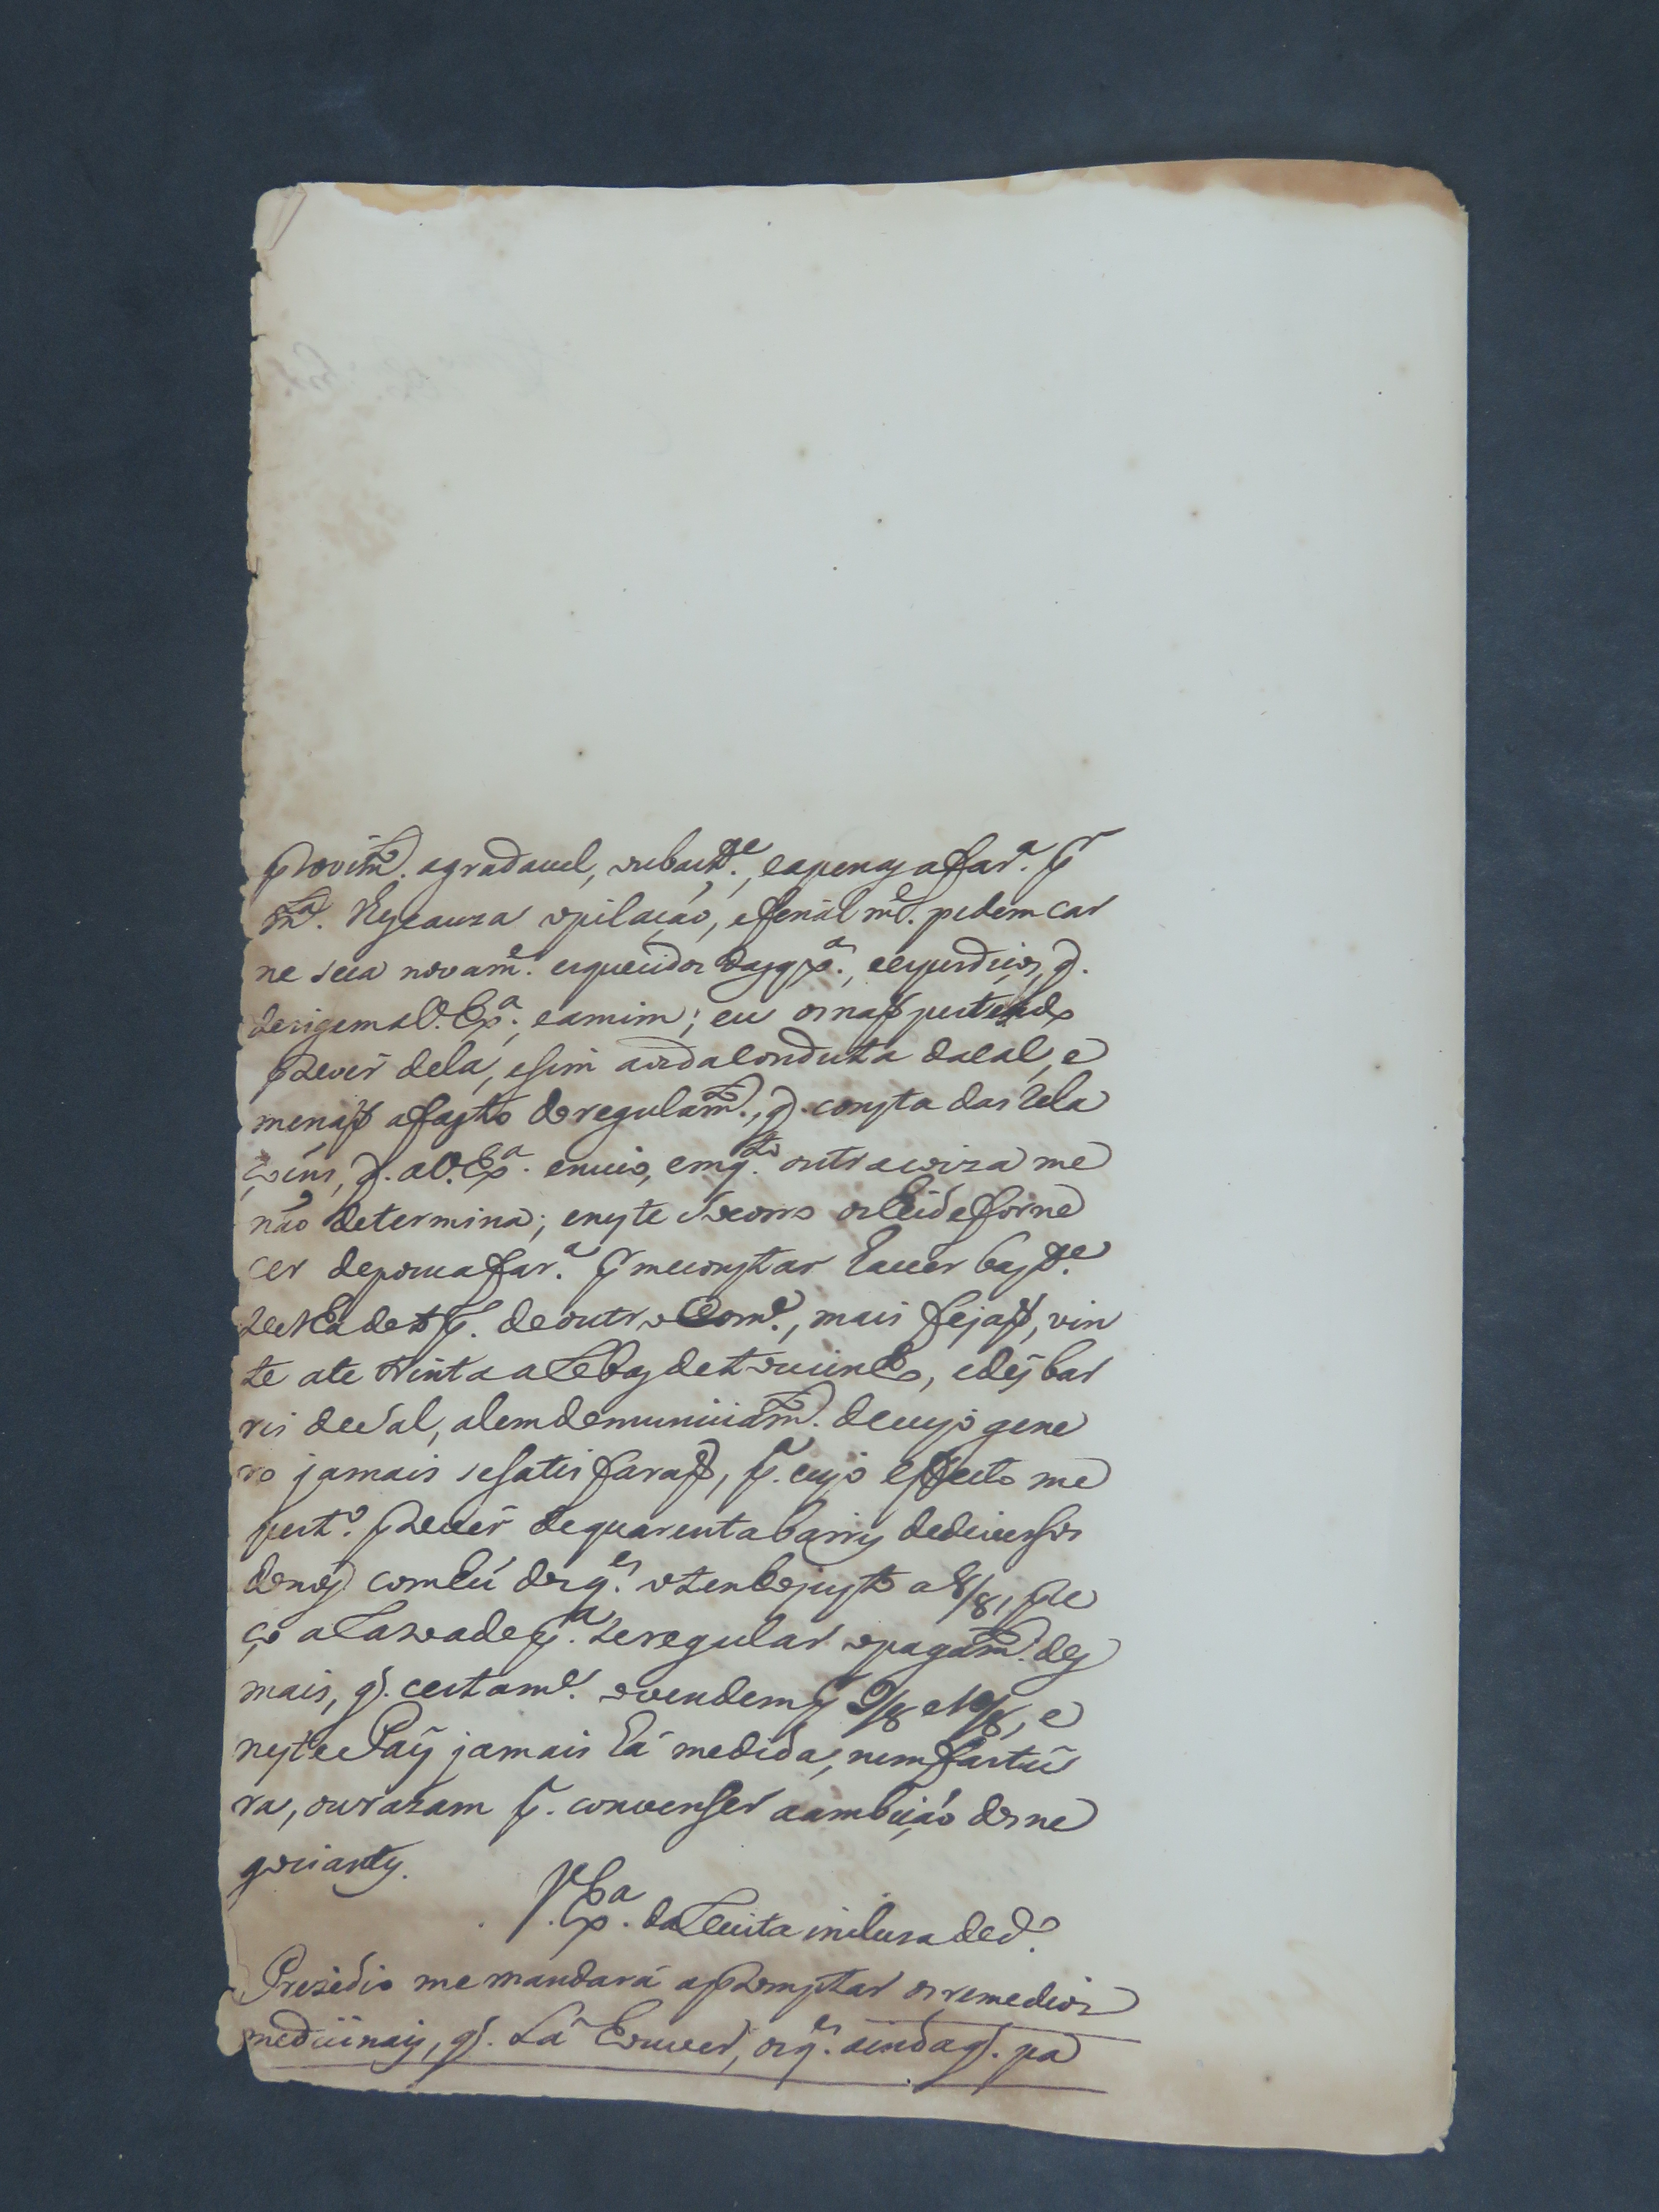 provim.to agradavel, e apenas a far.a pr
m.ta lhes cauza opilação, e final m.e pedem car
ne seca novam.e esquecidos
derigem a V. Ex.a, e a mim; eu os naõ pertendo
prover dela, e sim da Conduta da cal, e
me naõ afasto do regulam.to, q. consta das rela
çoins, q. a V. Ex.a envio, emq.to outra coiza me
não determina; e neste socorro os hei de forne
cer de pouca far.a pr me constar haver bast.e
de outro Com.e, mais feijaõ, vin
te ate trinta a Lobas de toucinho, e dés bar
ris de Sal, alem de municiam.to de cujo gene
ro jamais se satis faraõ, pr. cujo effeito me
pert.o prover de quarenta barris de diversos
donos com hú dos q.es o tenho justo a 8/8.as, pre
ço a Caza de se regular o pagam.to dos
mais, q. certam.e o vendem pr 9/8 e 10/8, e
neste Paiz jamais há medida, nem fartu
ra, ou razam pr. convenser a ambição dos ne
gociantes.
V. Ex.a da Receita incluza de d.o
Prezidio me mandará apromptar os remedios
medicinais, q. Lá houver, os q.es ainda q. pa